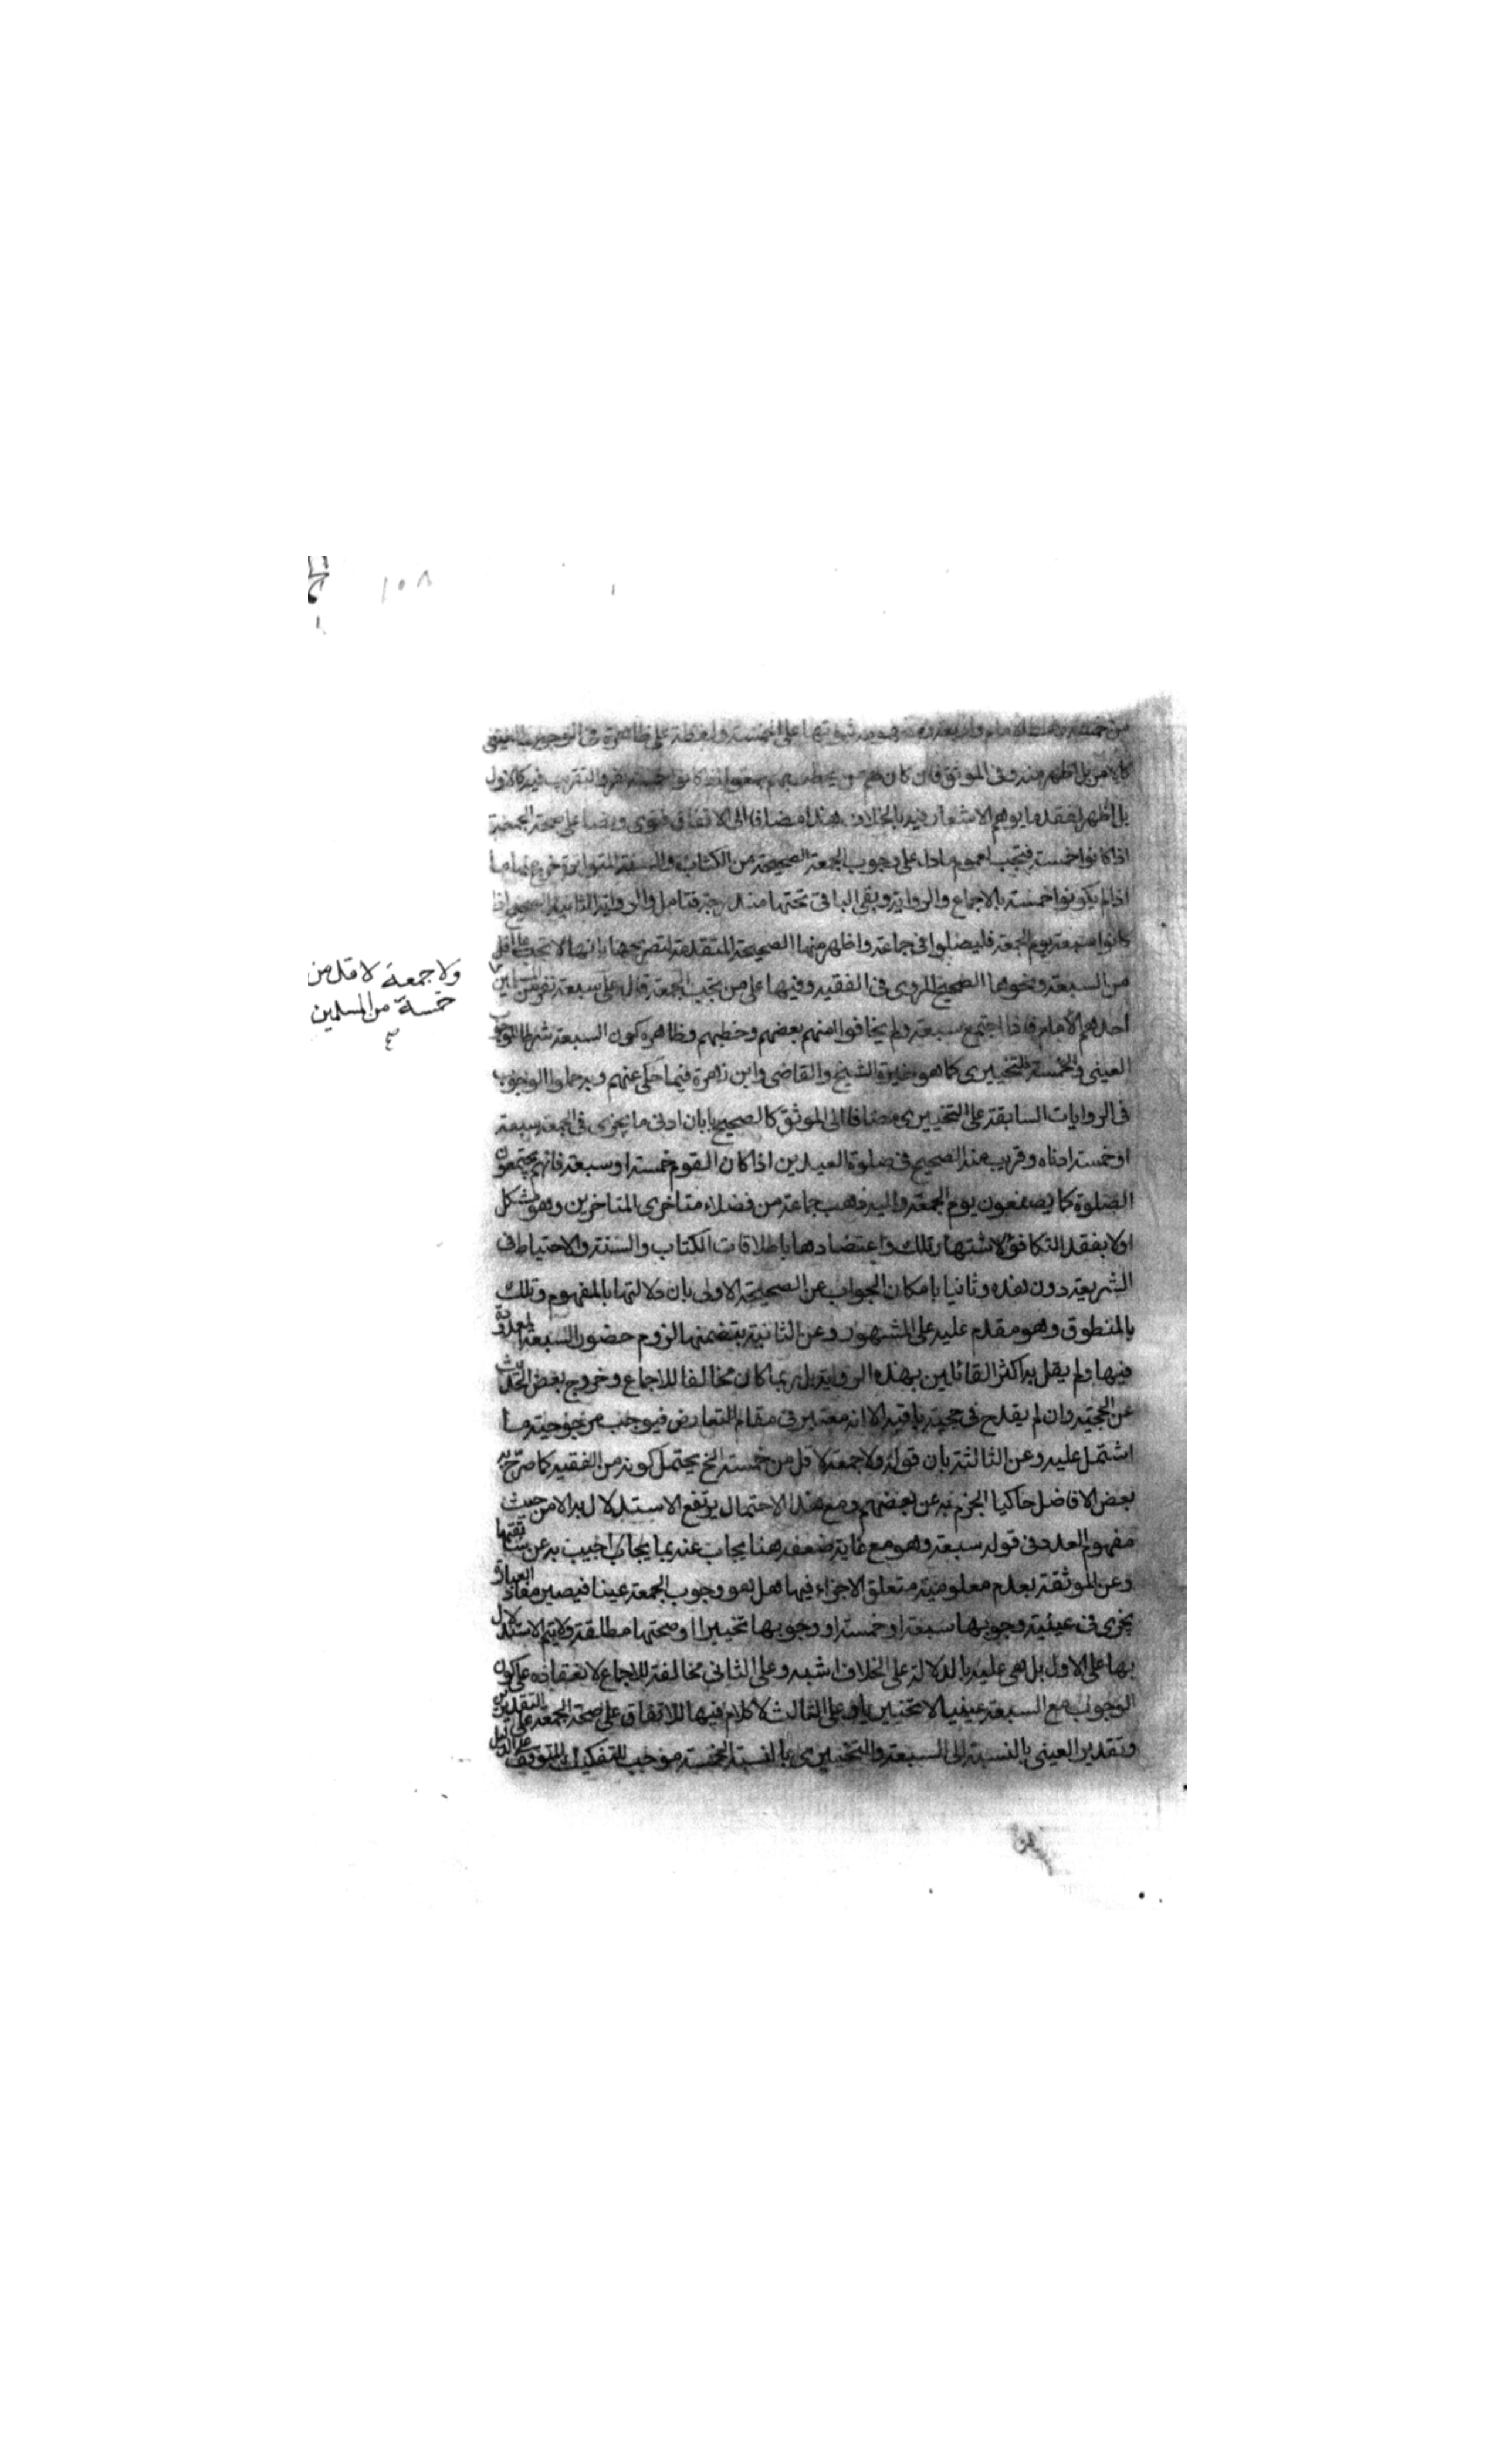 ١٠٨
من خمسة رهط الامام واربعة على الخمسة على ظاهرة فى الوجوب العينى
كالامر بل اظهر منه وفى الموثق فان كان لهم من يخطب بهم جمعوا اذا كانوا خمسة نفر والتقريب فيه كالاول
بل اظهر لفقد ما يوهم الاشعار فيه بالخلاف هذا مضافا الى الاتفاق فتوى ونصا على صحة الجمعة
اذا كانوا خمسة فتجب لعموم ما دل على وجوب الجمعة الصحيحة من الكتاب والسنة المتواترة خرج منها ما
اذا لم يكونوا خمسة بالاجماع والرواية وبقى الباقى تحتها مندرجة فتامل والرواية الثانية الصحيح اذا
كانوا سبعة يوم الجمعة فليصلوا فى جماعة واظهر منها الصحيحة المتقدمة لتصريحها بانها لا تجب على اقل
من السبعة ونحوها الصحيح المروى فى الفقيه وفيها على من تجب الجمعة قال على سبعة نفر من المسلمين
ولا جمعة لاقل من
خمسة من المسلمين
احدهم الامام فاذا اجتمع سبعة ولم يخافوا امهم بعضهم وخطبهم وظاهره كون السبعة شرطا للوجوب
العينى والخمسة للتخييرى كما هو خيرة الشيخ والقاضى وابن زهرة فيما حكى عنهم وبه حملوا الوجوب
فى الروايات السابقة على التخييرى مضافا الى الموثق كالصحيح بابان ادنى ما يجزى فى الجمعة سبعة
او خمسة ادناه وقريب منه الصحيح فى صلوة العيدين اذا كان القوم خمسة او سبعة فانهم يجتمعون
الصلوة كما يصنعون يوم الجمعة واليه ذهب جماعة من فضلاء متاخرى المتاخرين وهو مشكل
اولا بفقد التكافؤ لاشتهار تلك واعتضادها باطلاقات الكتاب والسنة والاحتياط فى
الشريعة دون هذه وثانيا بامكان الجواب عن الصحيحة الاولى بان دلالتها بالمفهوم وتلك
بالمنطوق وهو مقدم عليه على المشهور وعن الثانية بتضمنها لزوم حضور السبعة المعدودة
فيها ولم يقل به اكثر القائلين بهذه الرواية بل ربما كان مخالفا للاجماع وخروج بعض الحديث
عن الحجية وان لم يقدح فى حجية باقيه الا انه معتبر فى مقام التعارض فيوجب مرجوحية ما
اشتمل عليه وعن الثالثة بان قوله ولا جمعة لاقل من خمسة الخ يحتمل كونه من الفقيه كما صرح به
بعض الافاضل حاكيا الجزم به عن بعضهم ومع هذا الاحتمال يرتفع الاستدلال به الا من حيث
مفهوم العدد فى قوله سبعة وهو مع غاية ضعفه هنا يجاب عنه بما يجاب اجيب به عن سابقتها
وعن الموثقة بعدم معلومية متعلق الاجزاء فيها هل هو وجوب الجمعة عينا فيصير مفاد العبارة
يجزى فى عينية وجوبها سبعة او خمسة او وجوبها تخييرا او صحتها مطلقة ولا يتم الاستدلال
بها على الاول بل هى عليه بالدلالة على الخلاف اشبه وعلى الثانى مخالفة للاجماع لانعقاده على كون
الوجوب مع السبعة عينيا لا تخييريا وعلى الثالث لا كلام فيها للاتفاق على صحة الجمعة على التقديرين
وتقدير العينى بالنسبة الى السبعة والتخييرى بالنسبة الخمسة موجب للتفكيك المتوقف على الدليل